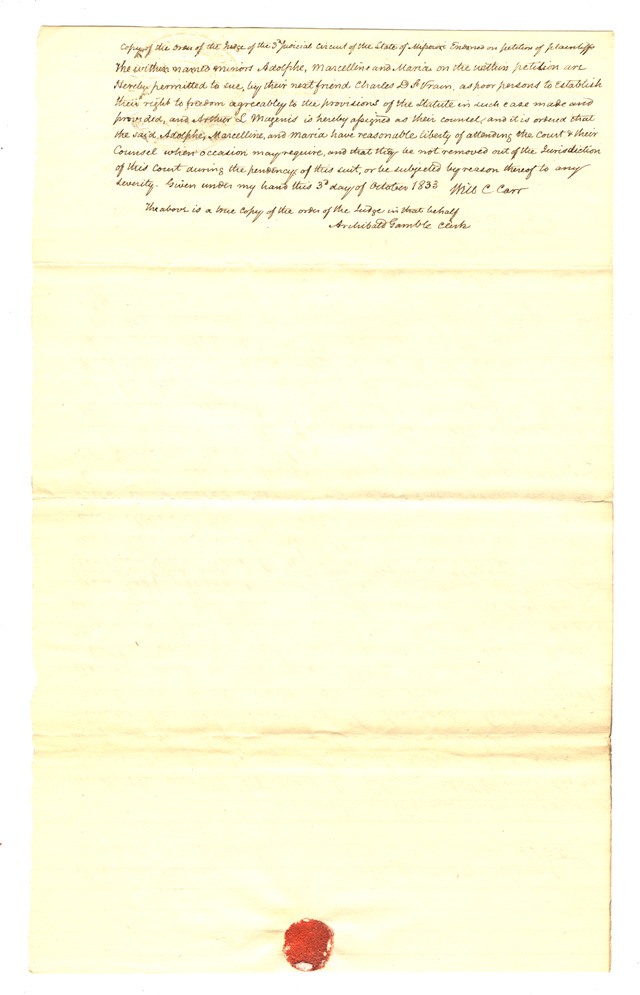 Copy of the order of the Judge of the 3d Judicial Circuit of the State of Missouri Endorsed on petition of plaintiffs
The within named minors Adolphe, Marcelline and Maria on the within petition are
Hereby permitted to sue, by their next friend Charles D. St Vrain, as poor persons to Establish
their right to freedom agreeably to the provisions of the Statute in such case made and
provided, and Arthur L Magenis is hereby assigned as their counsel, and it is ordered that
the said Adolphe, Marcelline, and Maria have reasonable liberty of attending the Court & their
Counsel when occasion may require, and that they be not removed out of the Jurisdiction
of this Court during the pendency of this suit, or be subjected by reason thereof to any
severity. Given under my hand this 3d day of October 1833 Will C Carr
The above is a true copy of the order of the Judge in that behalf
Archibald Gamble clerk